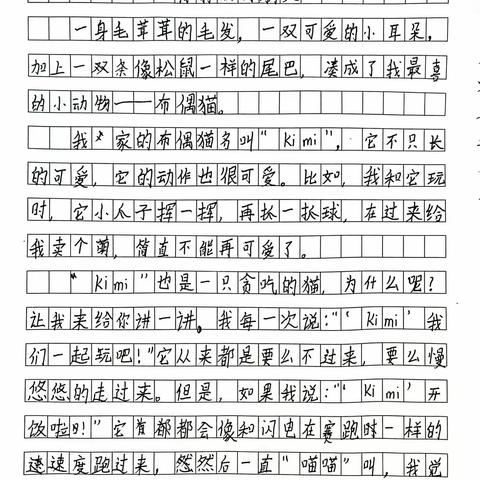 一身毛茸茸的毛发，一双可爱的小耳朵，
加上一双条像松鼠一样的尾巴，凑成了我最喜
的小动物——布偶猫。
我家的布偶猫名叫“kimi”，它不只长
的可爱，它的动作也很可爱。比如，我和它玩
时，它小爪子挥一挥，再抓一抓球，在过来给
我卖个萌，简直不能再可爱了。
“kimi”也是一只贪吃的猫，为什么呢？
让我来给你讲一讲。我每一次说：“‘kimi’我
们一起玩吧！”它从来都是要么不过来，要么慢
悠悠的走过来。但是，如果我说：“‘kimi’开
饭啦！”它都都会像和闪电在赛跑时一样的
速速度跑过来，然后一直“喵喵”叫，我觉